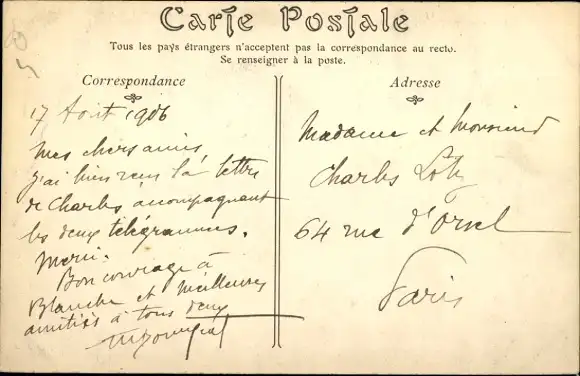 Carte Postale
Tous les pays étrangers n'acceptent pas la correspondance au recto.
Se renseigner à la poste.
Correspondance
17 Aout 1906
Mes chers amis
J'ai bien reçu la lettre
de Charles accompagnant
les deux télégrammes.
Merci.
Bon courage à
Blanche et meilleures
amitiés à tous deux
Adresse
Madame et Monsieur
Charles
64 rue d'Orsel
Paris